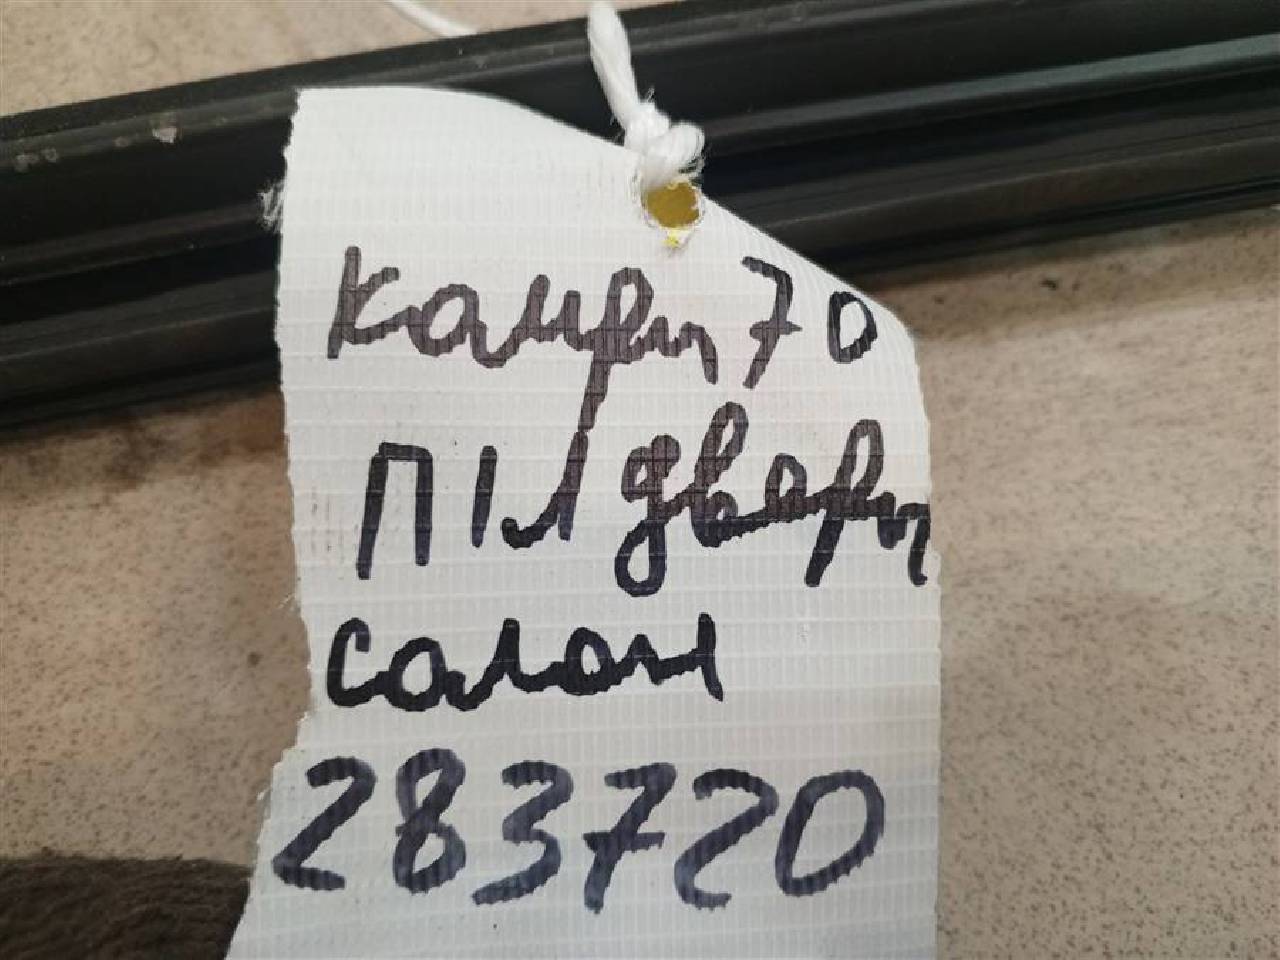 камри 70
П|Л двери
салон
283720